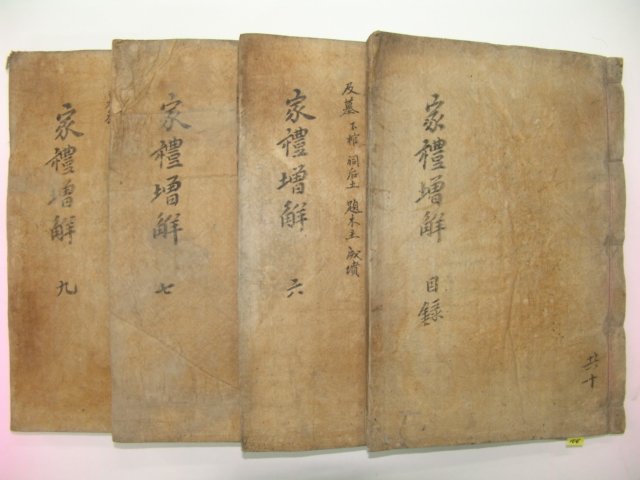 家禮增觧 目錄
共十
及墓 下棺 祠后土 題木主 成墳
家禮增觧 六
家禮增觧 七
家禮增觧 九